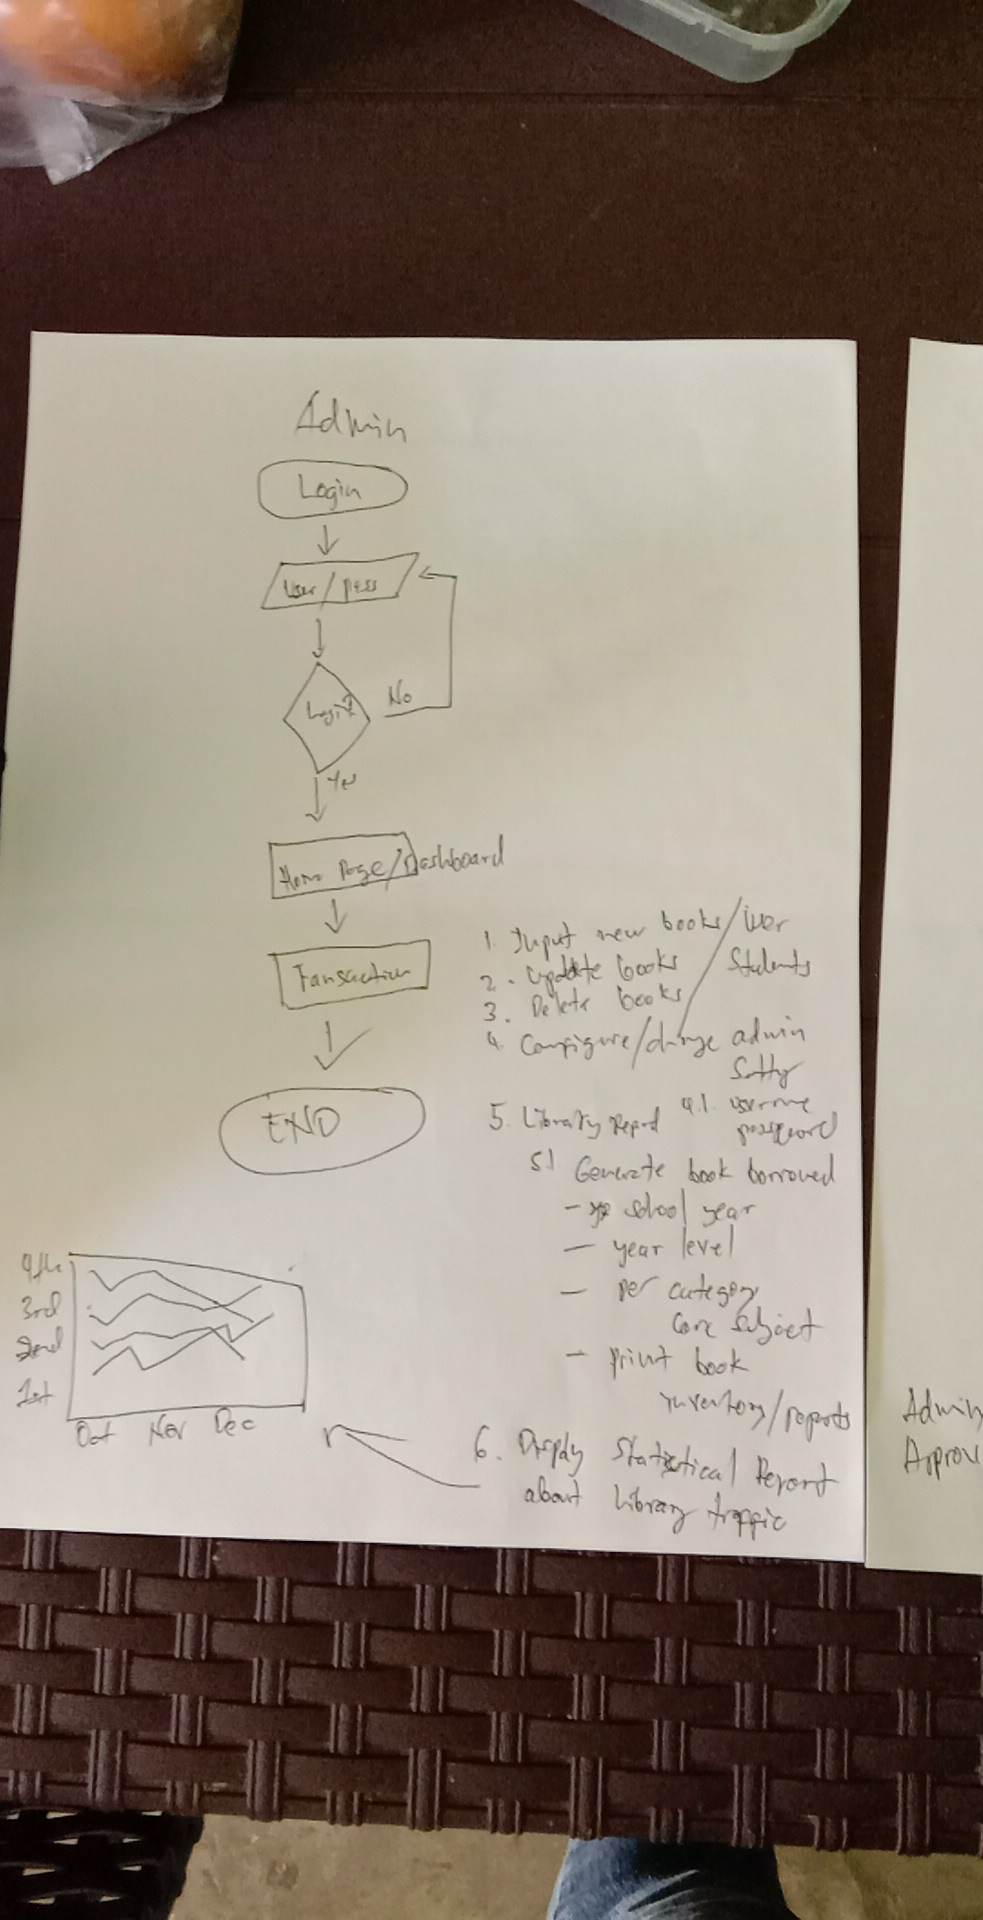 Admin
Login
User / pass
Login?
No
Yes
Home Page/Dashboard
Transaction
END
1. Input new books / User
2. Update books / Students
3. Delete books
4. Configure/change admin
5. Library Report 4.1. username
password
5.1 Generate book borrowed
- school year
- year level
- per category
core subject
- print book
inventory/reports
6. Display Statistical Report
about library traffic
4th
3rd
2nd
1st
Oct Nov Dec
Admin